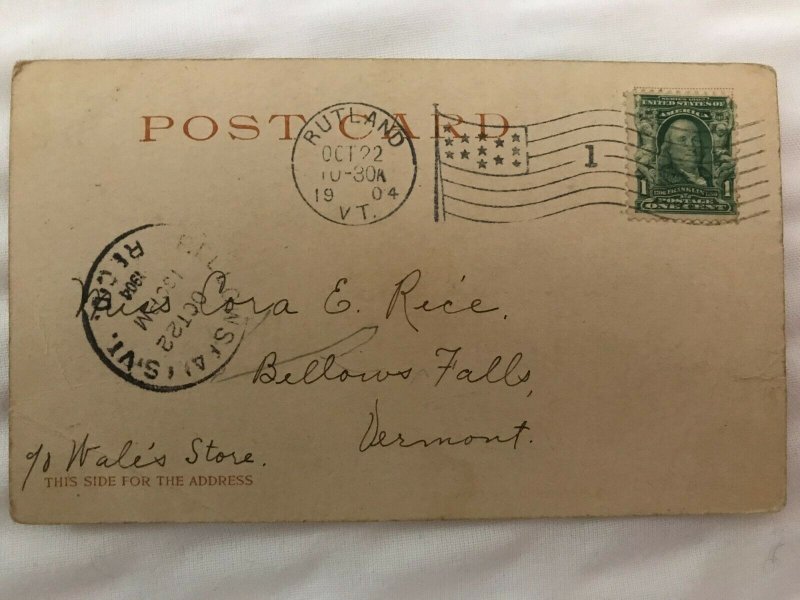 POST CARD
RUTLAND
OCT 22
10-30A
19 04
VT.
1
SERIES 1902
UNITED STATES OF
AMERICA
1 FRANKLIN 1
POSTAGE
ONE CENT
BELLOWS FALLS, VT.
OCT 22
1904
REC'D.
Miss Cora E. Rice.
Bellows Falls,
Vermont.
c/o Wale's Store.
THIS SIDE FOR THE ADDRESS